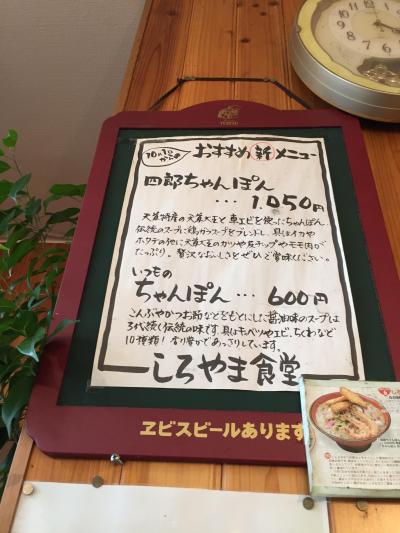 10月10日からの
おすすめ 新 メニュー
四郎ちゃんぽん
… 1,050円
天草特産の天草大王と車エビを使ったちゃんぽん。
伝統のスープに鶏ガラスープをブレンドし、具はイカや
ホタテの他に天草大王のカツや皮チップやモモ肉が
たっぷり。贅沢なおいしさをぜひご賞味ください。
いつもの
ちゃんぽん … 600円
こんぶやかつお節などをもとにした醤油味のスープは
3代続く伝統の味です。具はキャベツやエビ、ちくわなど
10種類!香り豊かであっさりしています。
しろやま食堂
ヱビスビールあります